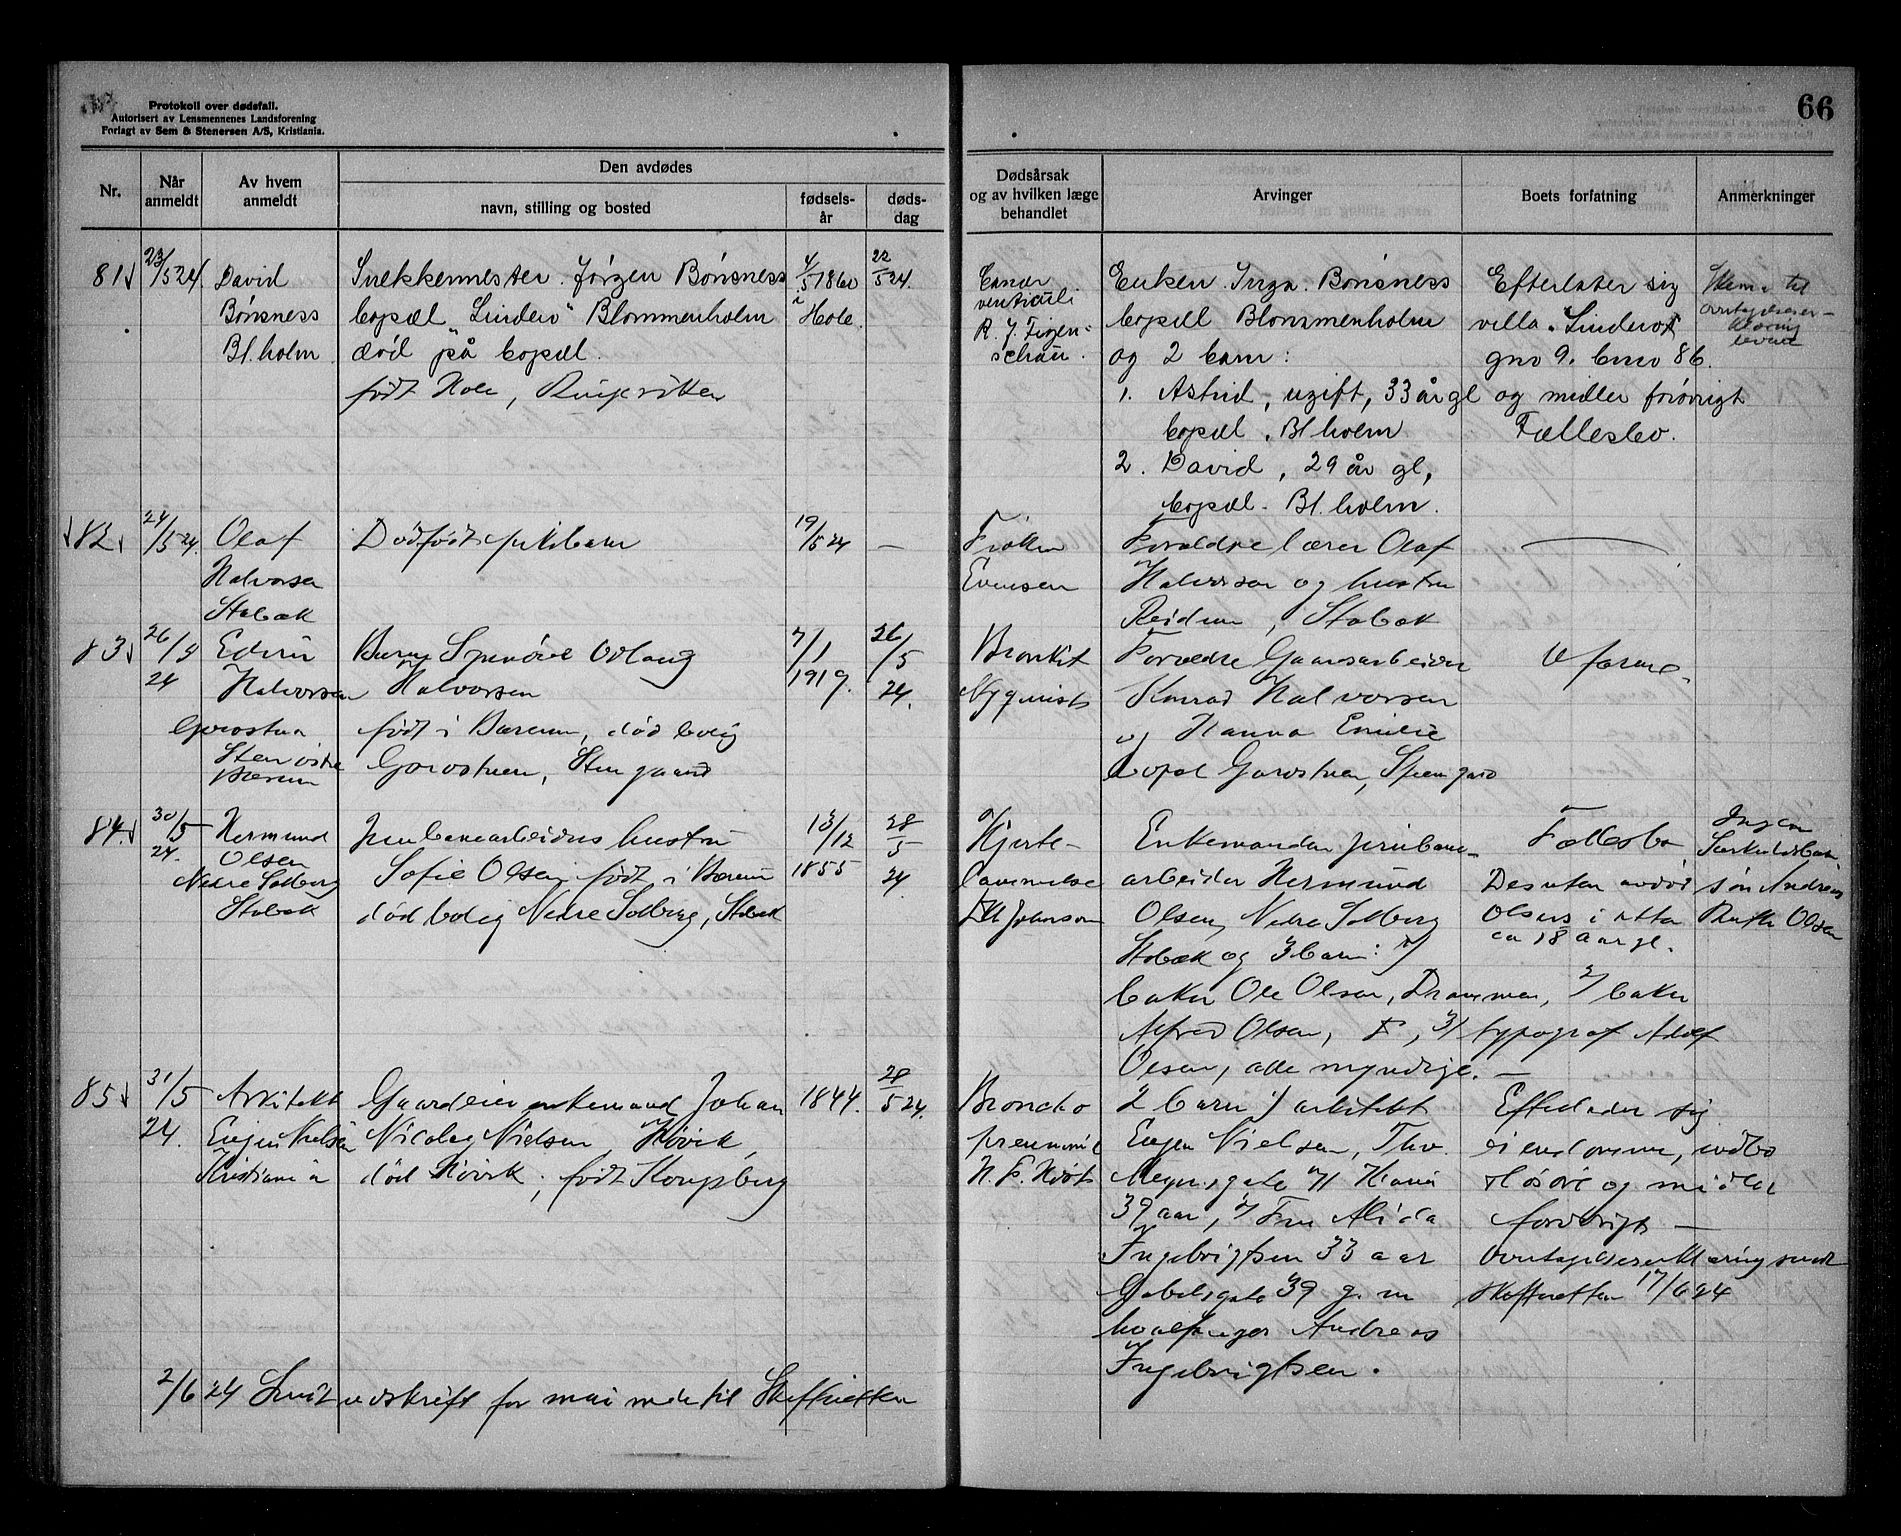 Protokoll over dødsfall.
Autorisert av Lensmennenes Landsforening
Forlagt av Sem & Stenersen A/S, Kristiania.
66
Nr.
Når anmeldt
Av hvem anmeldt
Den avdødes
navn, stilling og bosted
fødsels-år
døds-dag
Dødsårsak og av hvilken læge behandlet
Arvinger
Boets forfatning
Anmerkninger
81
23/5 24.
David
Bönsness
Bl.holm
Snekkermester Jörgen Bönsness
bopæl "Lindero" Blommenholm
död på bopæl.
født Hole, Ringerike
4/5 1860
i Hole
22/5 24.
Cancer
ventriculi
R. J. Figen-
schau.
Enken Inga Bönsness
bopæl Blommenholm
og 2 barn:
1. Astrid, ugift, 33 år gl
bopæl. Bl holm
2. David, 29 år gl,
bopæl. Bl. holm.
Efterlater sig
villa "Lindero"
gno 9. bno 86.
og midler forövrigt
Fællesbo.
Skema til
overtagelseser-
klæring
82
24/5 24.
Olaf
Halvorsen
Stabæk
Dødfødt pikebarn
19/5 24
—
Frøken
Evensen
Forældre lærer Olaf
Halvorsen og hustru
Reidun, Stabæk
83
26/5
24
Edvin
Halvorsen
Gorostua
Sten østre
Bærum
Odlaug
Halvorsen
født i Bærum, død bolig
Gorostuen, Stengaard
7/1
1919.
26/5
24.
Bronkit
Nyquist
Forældre Gaardsarbeider
Konrad Halvorsen
og Hanna Emilie
bopæl Gorostuen, Stengaard
84.
30/5
24.
Hermund
Olsen
Nedre Solberg
Stabæk
Jernbanearbeiders hustru
Sofie Olsen født i Bærum
død bolig Nedre Solberg, Stabæk
13/12
1855
28/5
24.
Hjerte-
lammelse
Johanson
Enkemanden jernbane-
arbeider Hermund
Olsen, Nedre Solberg
Stabæk og 3 barn: 1/
baker Ole Olsen, Drammen, 2/ baker
Alfred Olsen, 3/ typograf Adolf
Olsen, alle myndige. —
Fællesbo
Desuten avdød
Olsens
ca 18 Aar gl.
Ingen
Særkuldsbarn
søn Andreas
Olsen
85
31/5
24.
Arkitekt
Eugen Nielsen
Kristiania
Gaardeier enkemand Johan
Nicolay Nielsen Høvik,
død Høvik, født Kongsberg
1844.
28/5 24.
Broncho
pneumoni
2 barn 1/ arkitekt
Eugen Nielsen, Thv.
Meyersgate
39 aar, 2/ Fru Alida
Ingebrigtsen 33 aar
Gabelsgate 39 g. m
hvalfanger Andreas
Ingebrigtsen.
Efterlader sig
eiendomme, indbo
løsøre og midler
forøvrigt —
Overtagelseserklæring sendt
Skifteretten 17/6 24
2/6 24 Sendt utskrift for mai md. til Skifteretten